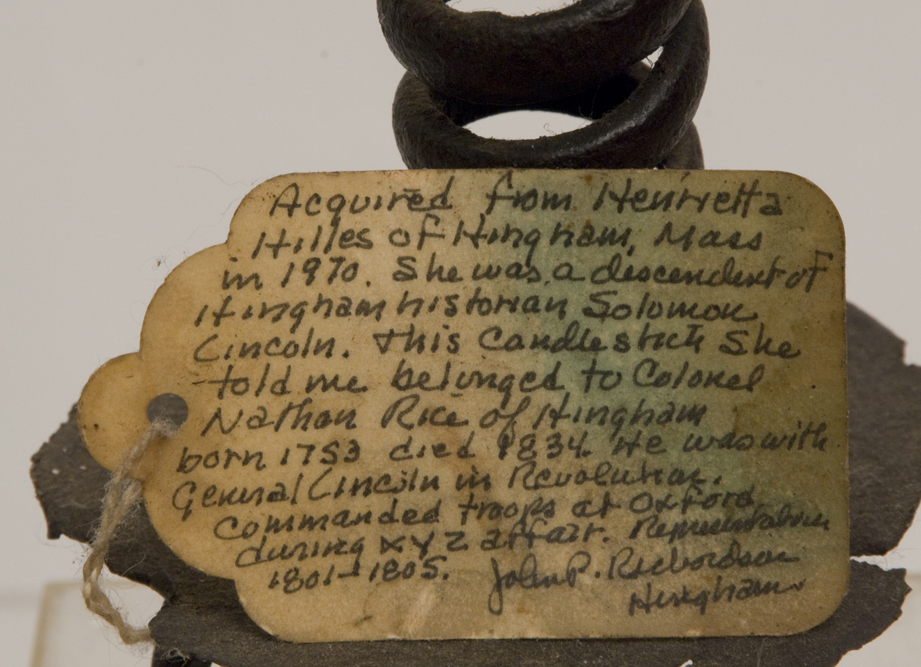 Acquired from Henrietta
Hilles of Hingham, Mass
in 1970. She was a descendent of
Hingham historian Solomon
Lincoln. This Candlestick She
told me belonged to Colonel
Nathan Rice of Hingham
born 1753 died 1834. He was with
General Lincoln in Revolution.
Commanded troops at Oxford
during XYZ affair. Representative
1801-1805. John P. Richardson
Hingham.